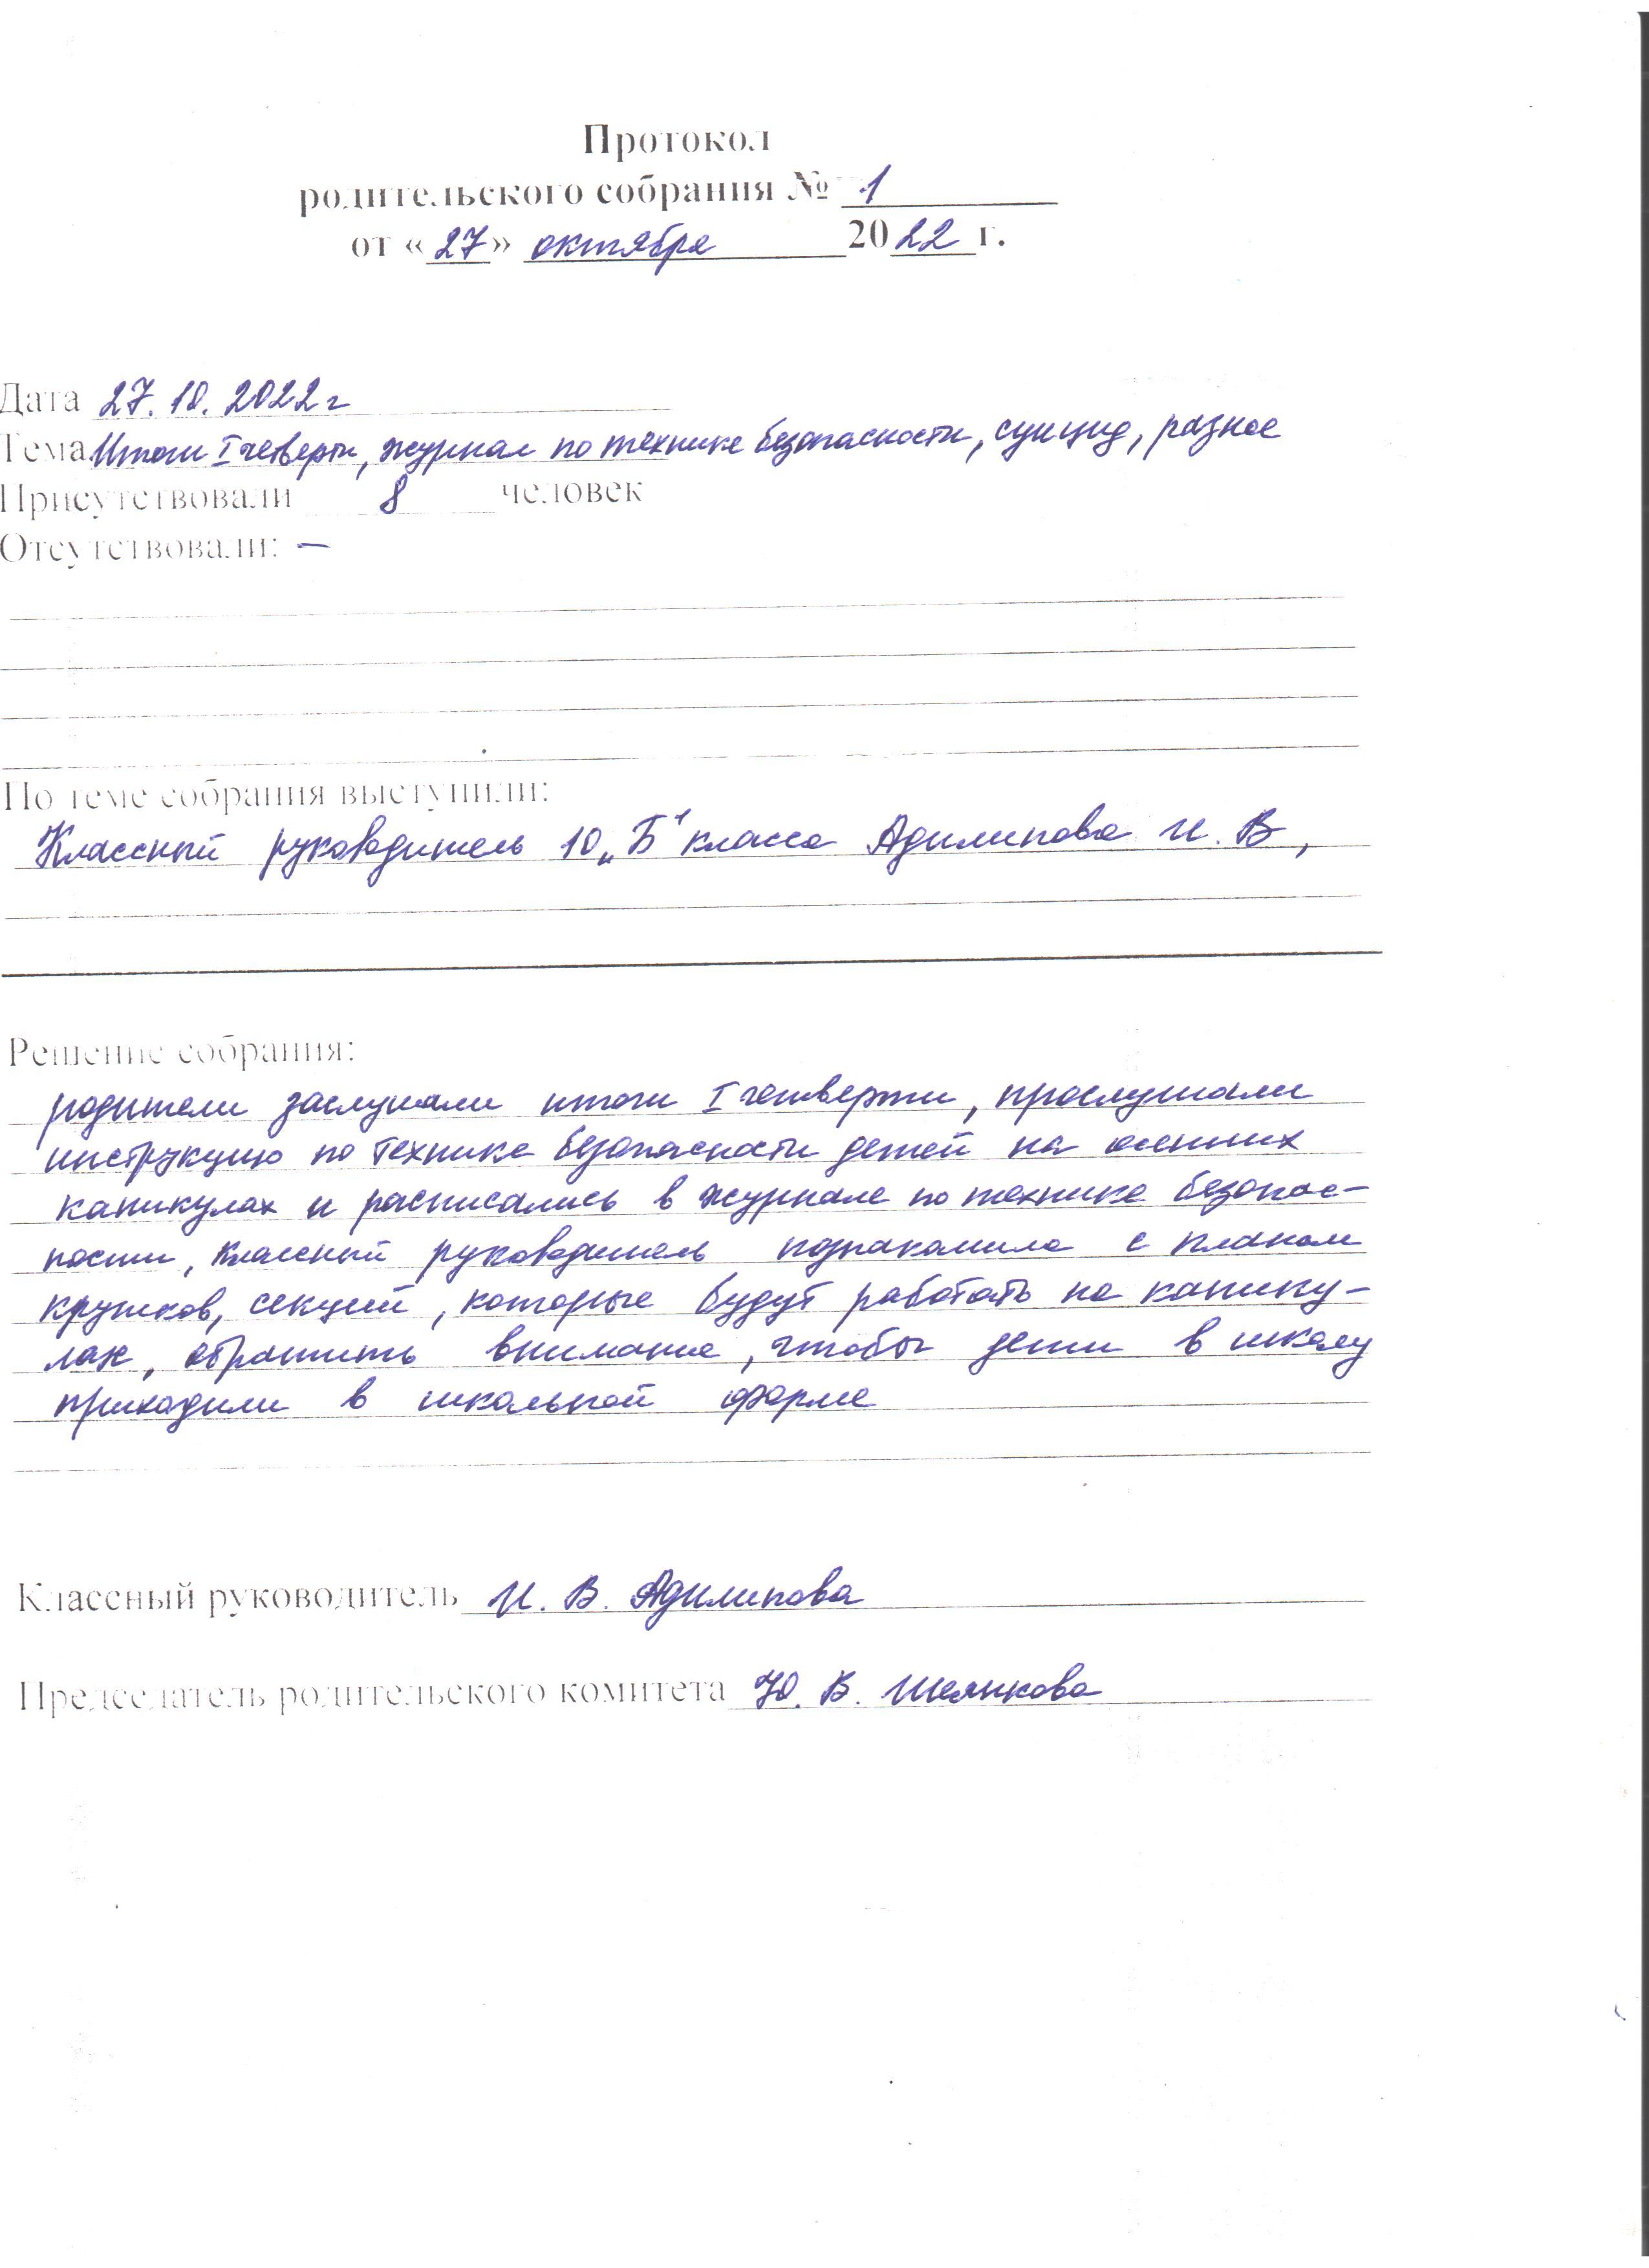 Протокол
родительского собрания № 1
от «27» октября 2022 г.
Дата 27.10.2022 г
Тема Итоги I четверти, журнал по технике безопасности, суицид, разное
Присутствовали 8 человек
Отсутствовали: —
По теме собрания выступили:
Классный руководитель 10 „Б" класса Адилипова И. В,
Решение собрания:
родители заслушали итоги I четверти, прослушали
инструкцию по технике безопасности детей на осенних
каникулах и расписались в журнале по технике безопас-
ности, классный руководитель познакомила с планом
кружков, секций, которые будут работать на канику-
лах, обратить внимание, чтобы дети в школу
приходили в школьной форме
Классный руководитель И. В. Адилипова
Председатель родительского комитета Ю. В.